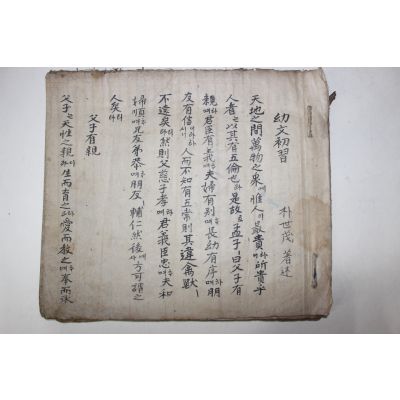 幼文初習
朴世茂 著述
天地之間萬物之衆에惟人이最貴하니所貴乎
人者는以其有五倫也라是故로孟子曰父子有
親하며君臣有義하며夫婦有別하며長幼有序하며朋
友有信이라하시니人而不知有五常則其違禽獸ㅣ
不遠矣라然則父慈子孝하며君義臣忠하며夫和
婦順하며兄友弟恭하며朋友輔仁然後에方可謂之
人矣라
父子有親
父子는天性之親이라生而育之하고愛而教之하며奉而承